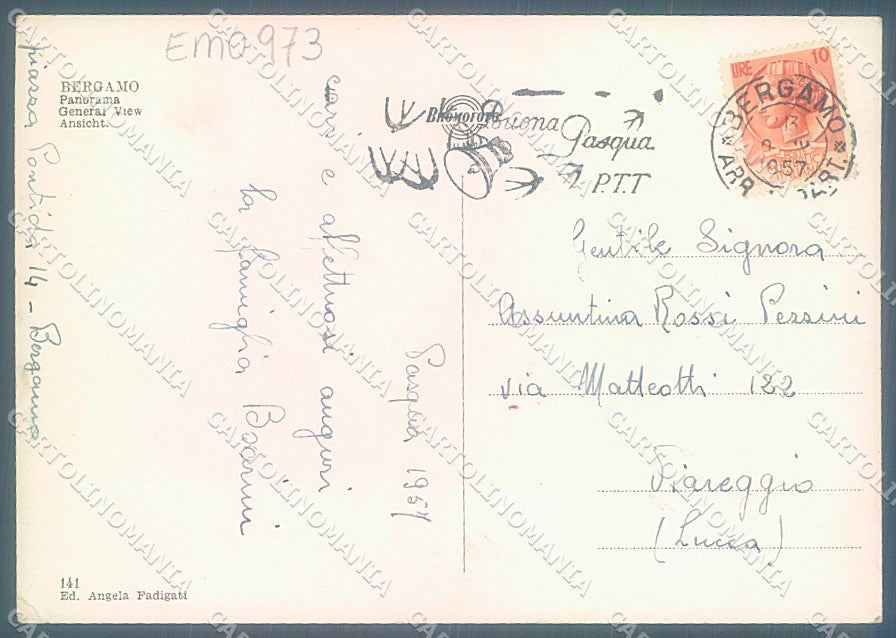 EMO973
BERGAMO
Panorama
General View
Ansicht.
piazza Pontida 14 - Bergamo
cari e affettuosi auguri
la famiglia
Pasqua 1957
BROMOFOTO
Buona
Pasqua
P.T.T
LIRE 10
BERGAMO
13
1957
ARR. PART.
Gentile Signora
Assuntina Rossi Pessini
via Matteotti 122
Viareggio
(Lucca)
141
Ed. Angela Fadigati
CARTOLINOMANIA